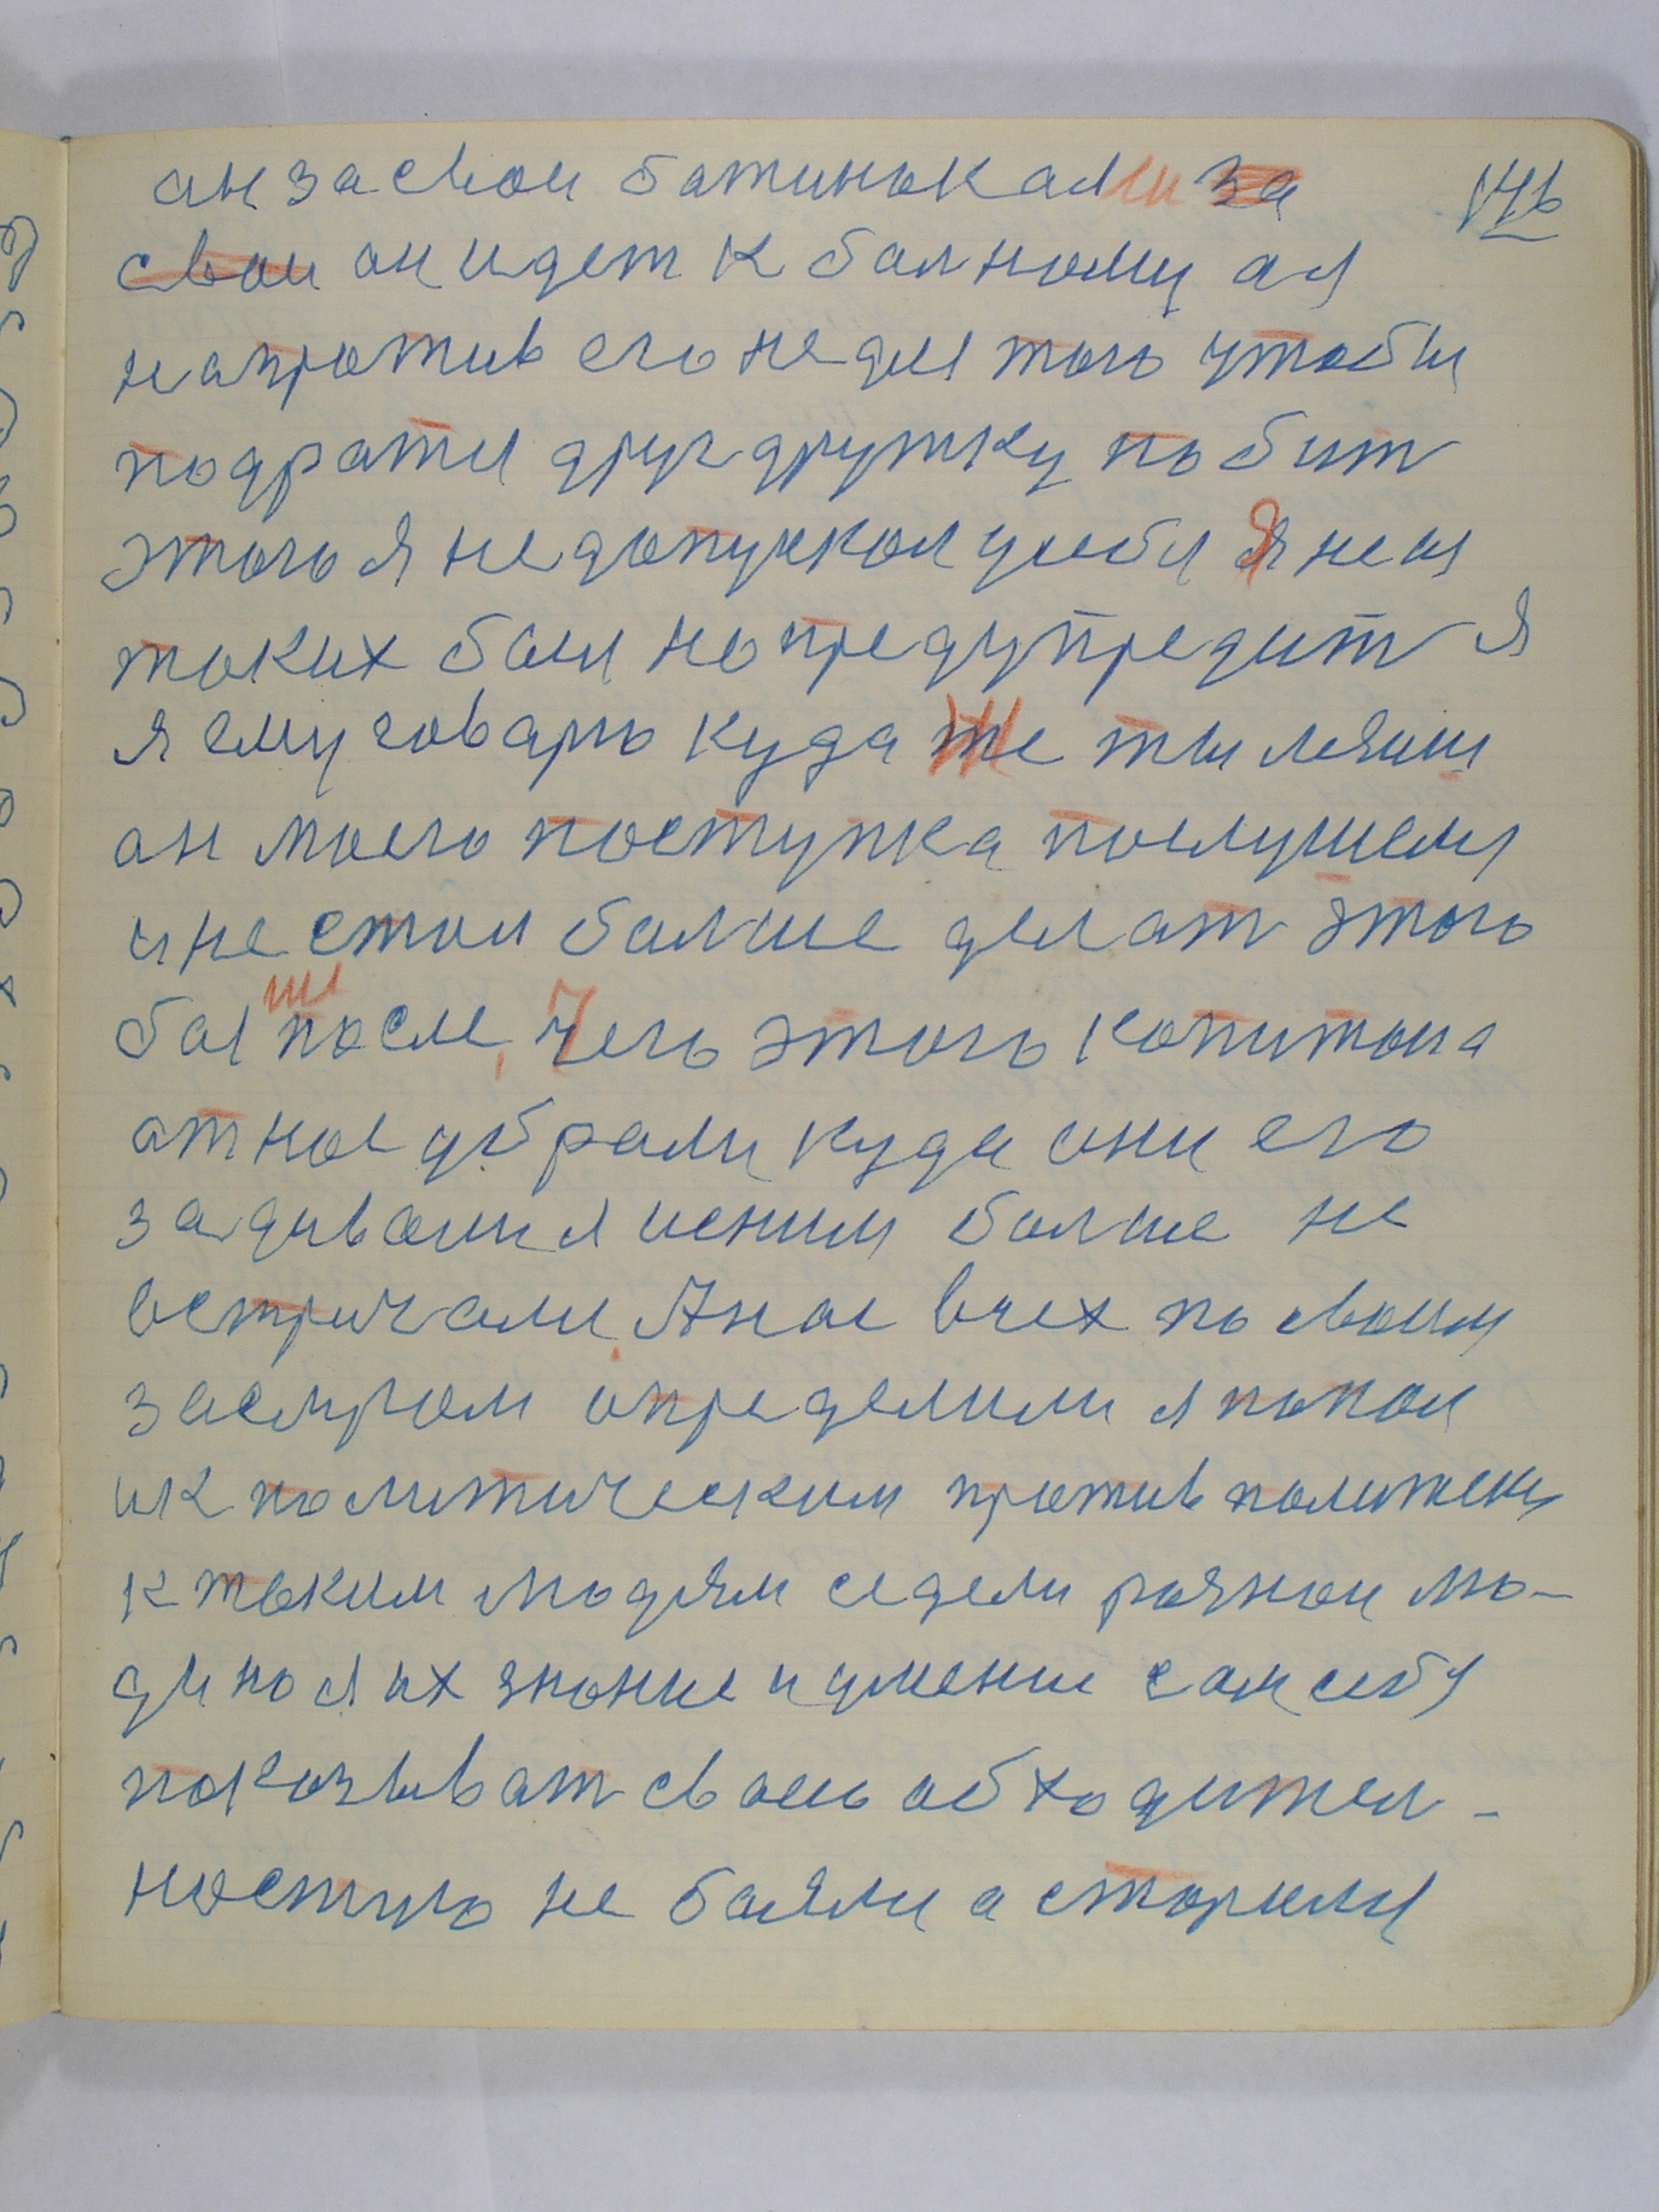 146
он за свои ботинокали за
свои он идет к болному а я
напротив его не для того чтобы
подратя друг дружку побит
этого я не допускол уебя я неш
токих бол но предупредит я
я ему говарю куда же ты лезиш
он моего поступка послушеля
и не стол болше делат этого
бол после, чего этого копитона
от нос уброли куда они его
задивоили я сеним болше не
встричоли. А нос всех по своим
заслугом определили я попол
ик политическим против политеки
к токим людям седели розной лю-
ди но я их зноние и умение сам себя
показыват своею обходител-
ностую не боялся а сторился